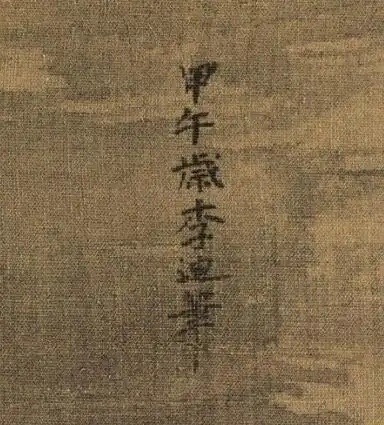 甲午歲李迪筆